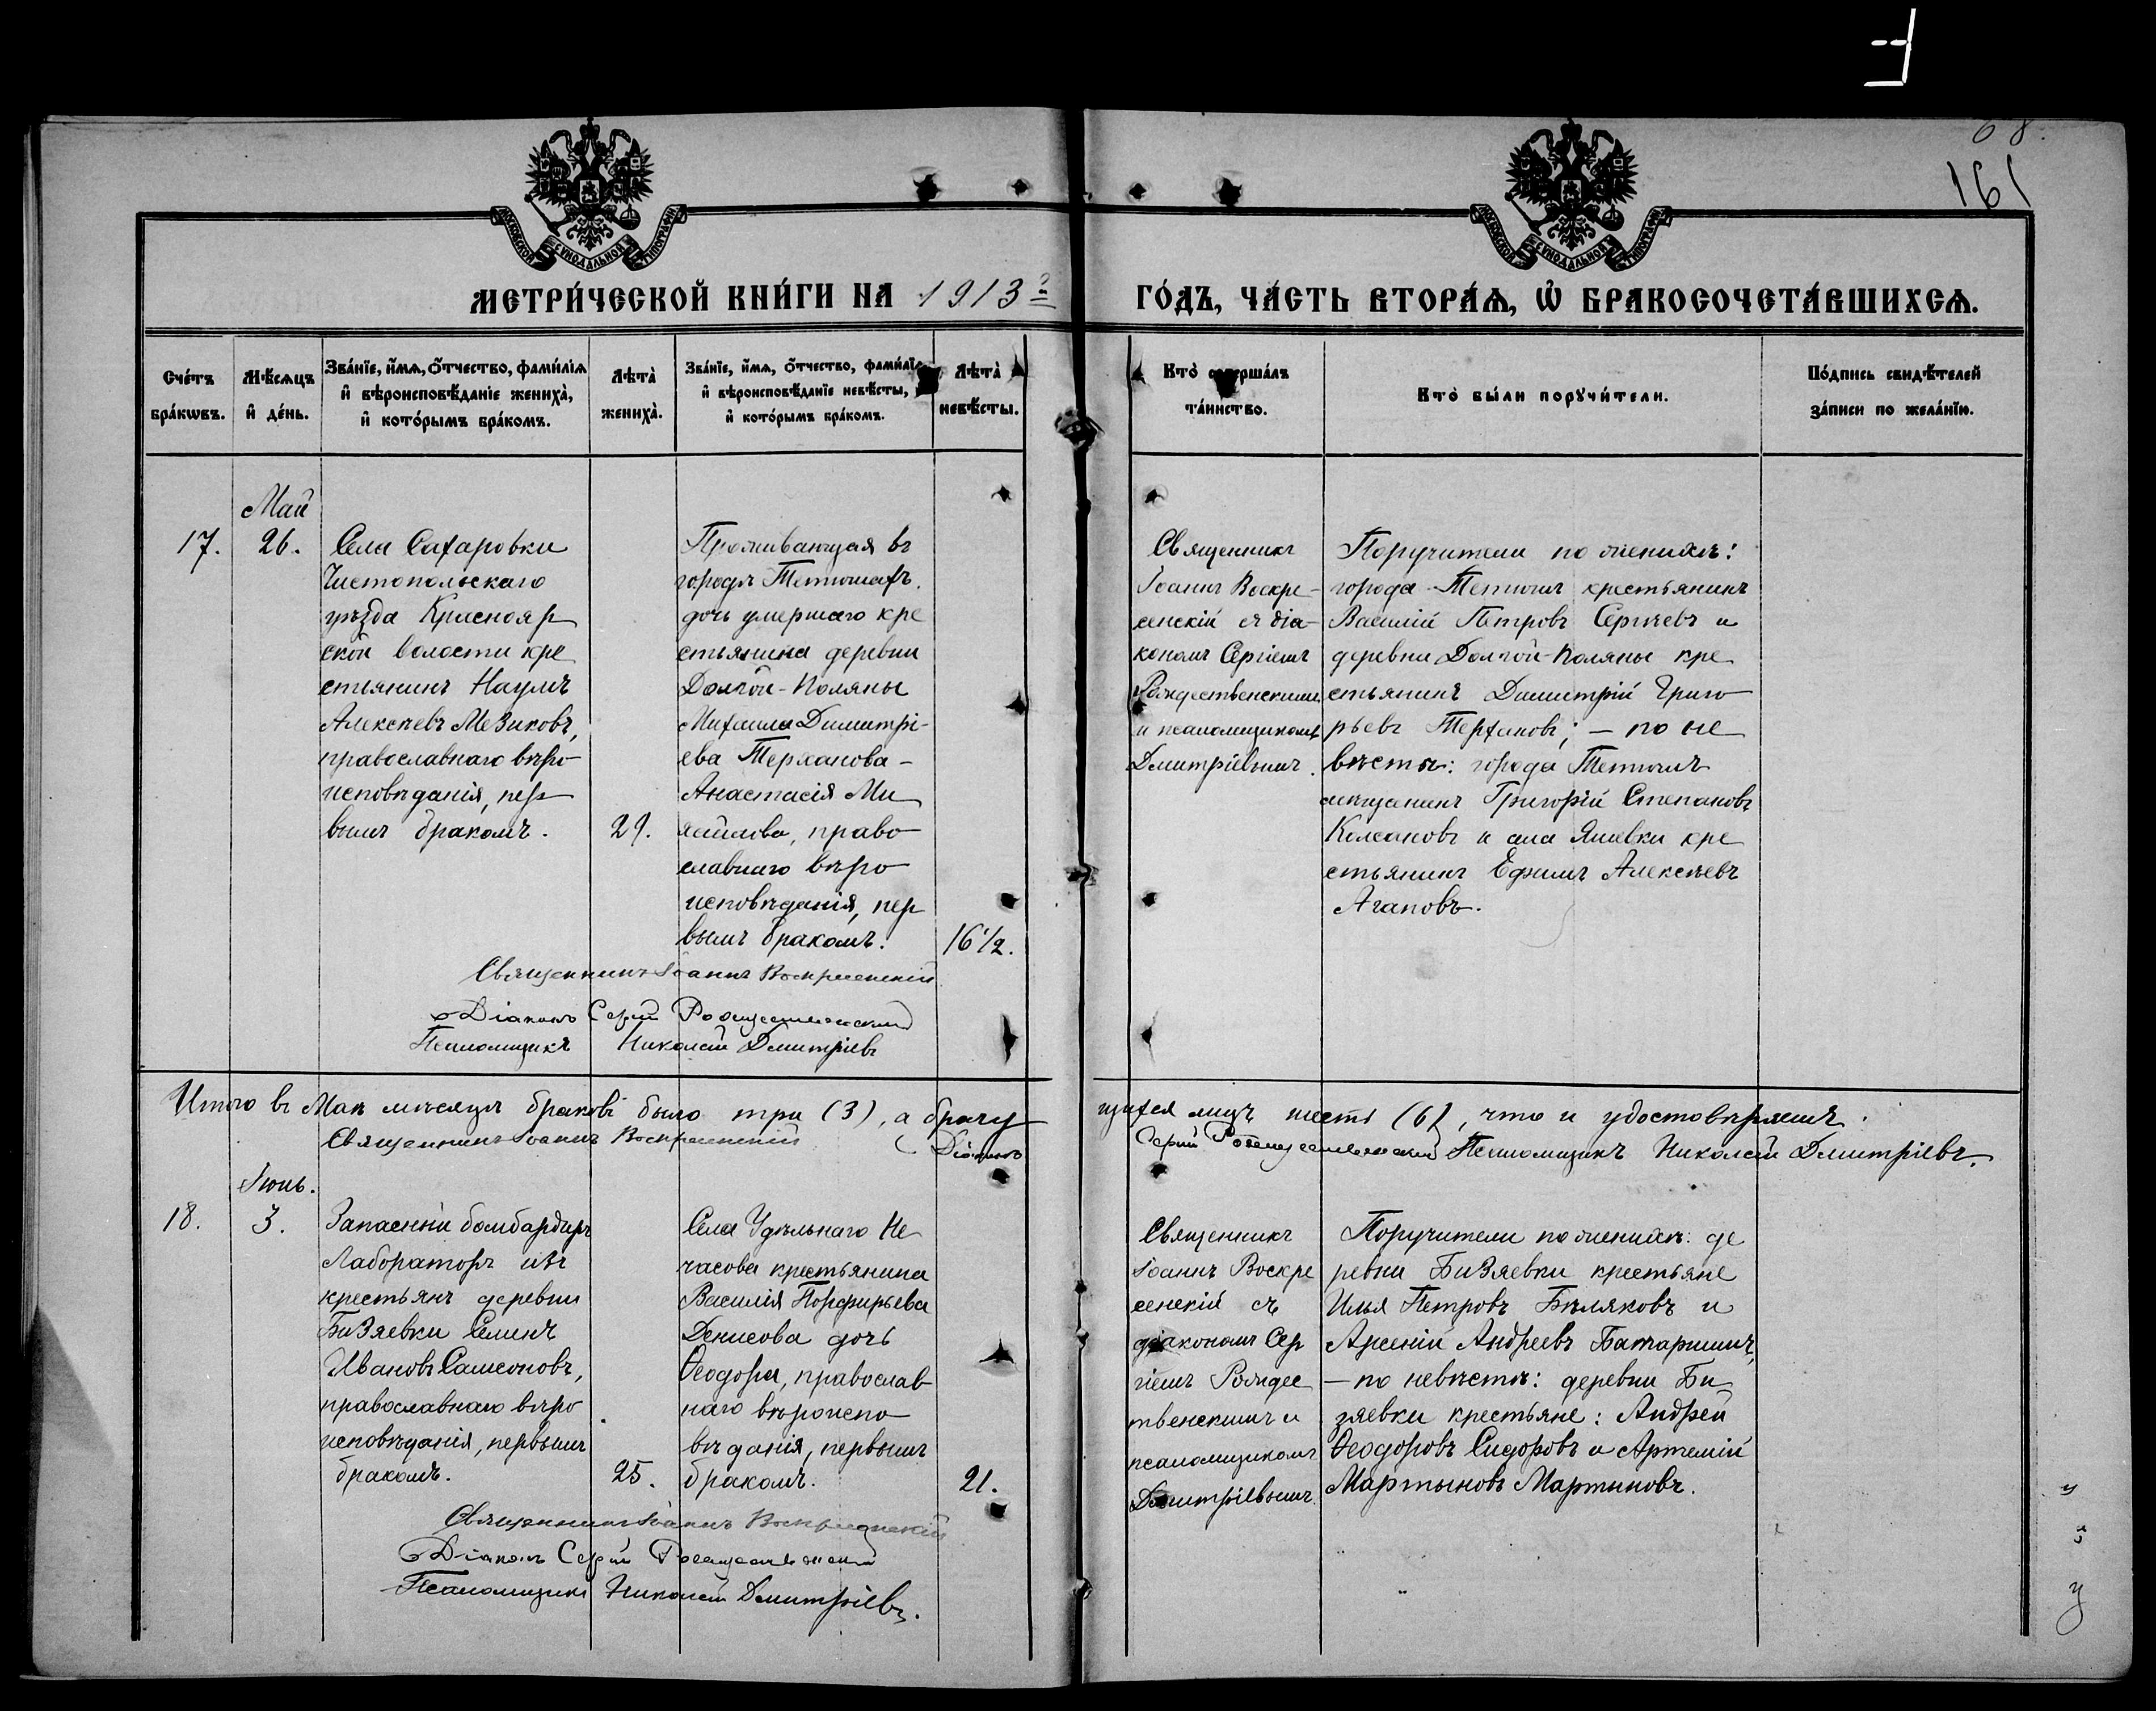 68.
161
МОСКОВСКОЙ СУНОДАЛЬНОЙ ТИПОГРАФІИ
МОСКОВСКОЙ СУНОДАЛЬНОЙ ТИПОГРАФІИ
МЕТРИ́ЧЕСКОЙ КНИ́ГИ НА 1913 г
ГО́ДЪ, ЧА́СТЬ ВТОРА́Ѧ, Ѽ БРАКОСОЧЕТА́ВШИХСѦ.
Сче́тъ бра́кѡвъ.
Мѣ́сѧцъ и҆ де́нь.
Зва́нїе, и҆́мѧ, ѻ҆́тчество, фами́лїѧ
и҆ вѣроисповѣ́данїе жениха̀,
и҆ кото́рымъ бра́комъ.
Лѣта̀ жениха̀.
Зва́нїе, и҆́мѧ, ѻ҆́тчество, фами́лїѧ
и҆ вѣроисповѣ́данїе невѣ́сты,
и҆ кото́рымъ бра́комъ.
Лѣта̀ невѣ́сты.
Кто̀ соверша́лъ та́инство.
Кто̀ бы́ли порꙋчи́тели.
По́дпись свидѣ́телей
за́писи по жела́нїю.
Май
17.
26.
Села Сахаровки
Чистопольскаго
уѣзда Краснояр
ской волости кре
стьянинъ Наумъ
Алексѣевъ Мезиковъ,
православнаго вѣро
исповѣданія, пер
вымъ бракомъ.
29.
Проживающая въ
городѣ Тетюшахъ
дочь умершаго кре
стьянина деревни
Долгой-Поляны
Михаила Димитрі-
ева Терханова -
Анастасія Ми
хайлова, право
славнаго вѣро
исповѣданія, пер
вымъ бракомъ.
16 1/2.
Священникъ
Іоаннъ Воскре-
сенскій съ діа-
кономъ Сергіемъ
Рождественскимъ
и псаломщикомъ
Дмитріевымъ.
Поручители по женихѣ:
города Тетюшъ крестьянинъ
Василій Петровъ Сергѣевъ и
деревни Долгой-Поляны кре
стьянинъ Димитрій Григо
рьевъ Терхановъ; - по не
вѣстѣ: города Тетюшъ
мѣщанинъ Григорій Степановъ
Колсановъ и села Яшевки кре
стьянинъ Ефимъ Алексѣевъ
Агаповъ.
Священникъ Іоаннъ Воскресенскій
Діаконъ Сергій Рождественскій
Псаломщикъ Николай Дмитріевъ
Итого въ Маѣ мѣсяцѣ браковъ было три (3), а брачу
щихся лицъ шесть (6), что и удостовѣряемъ.
Священникъ Іоаннъ Воскресенскій Діаконъ
Сергій Рождественскій Псаломщикъ Николай Дмитріевъ.
Іюнь.
18.
3.
Запасный бомбардиръ
Лабораторъ изъ
крестьянъ деревни
Бизяевки Семенъ
Ивановъ Самсоновъ,
православнаго вѣро
исповѣданія, первымъ
бракомъ.
25.
Села Удѣльнаго Не
часова крестьянина
Василія Порфирьева
Денисова дочь
Ѳеодора, православ
наго вѣроиспо
вѣданія, первымъ
бракомъ.
21.
Священникъ
Іоаннъ Воскре
сенскій съ
діакономъ Сер
гіемъ Рождес
твенскимъ и
псаломщикомъ
Дмитріевымъ.
Поручители по женихѣ: де
ревни Бизяевки крестьяне
Илья Петровъ Бѣляковъ и
Арсеній Андреевъ Батаршинъ,
- по невѣстѣ: деревни Би
зяевки крестьяне: Андрей
Ѳеодоровъ Сидоровъ и Артемій
Мартыновъ Мартыновъ.
Священникъ Іоаннъ Воскресенскій
Діаконъ Сергій Рождественскій
Псаломщикъ Николай Дмитріевъ.